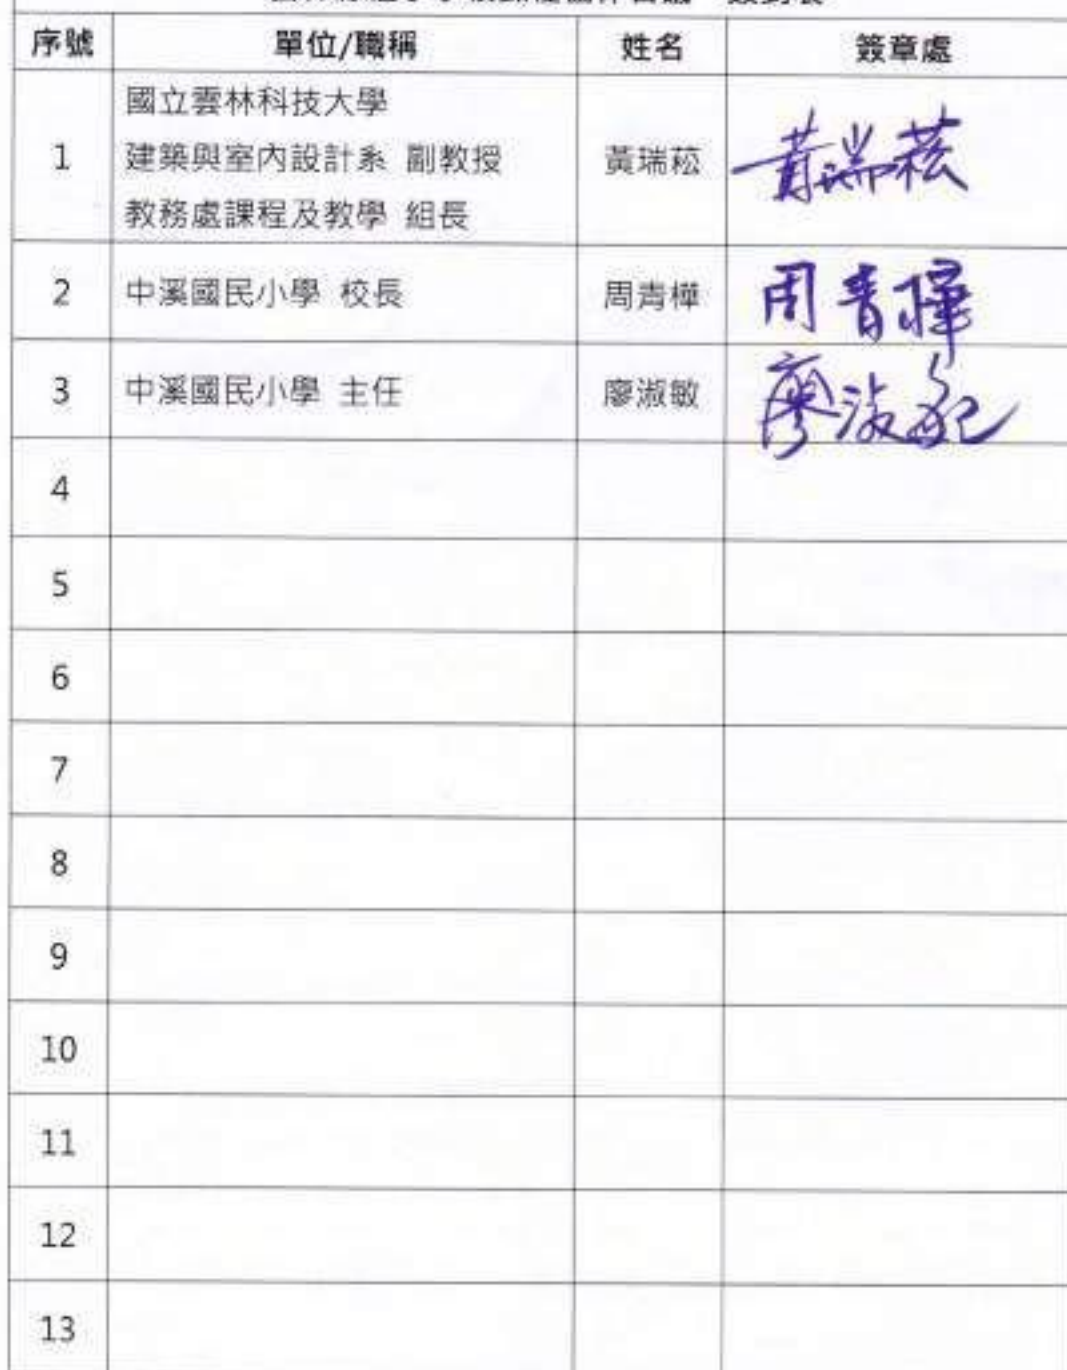 序號 單位/職稱 姓名 簽章處
國立雲林科技大學
1 建築與室內設計系 副教授 黃瑞菘 黃瑞菘
教務處課程及教學 組長
2 中溪國民小學 校長 周青樺 周青樺
3 中溪國民小學 主任 廖淑敏 廖淑敏
4
5
6
7
8
9
10
11
12
13